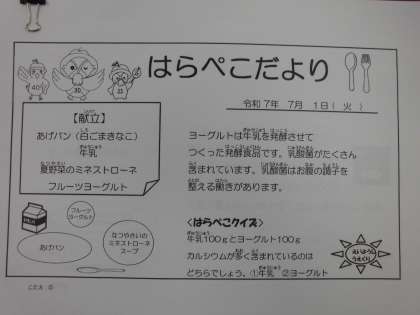 はらぺこだより
令和7年 7月 1日(火)
【献立】
あげパン(白ごまきなこ)
牛乳
夏野菜のミネストローネ
フルーツヨーグルト
ヨーグルトは牛乳を発酵させて
つくった発酵食品です。乳酸菌がたくさん
含まれています。乳酸菌はお腹の調子を
整える働きがあります。
フルーツ
ヨーグルト
あげパン
なつやさいの
ミネストローネ
スープ
<はらぺこクイズ>
牛乳100gとヨーグルト100g
カルシウムが多く含まれているのは
どちらでしょう。①牛乳 ②ヨーグルト
えいよう